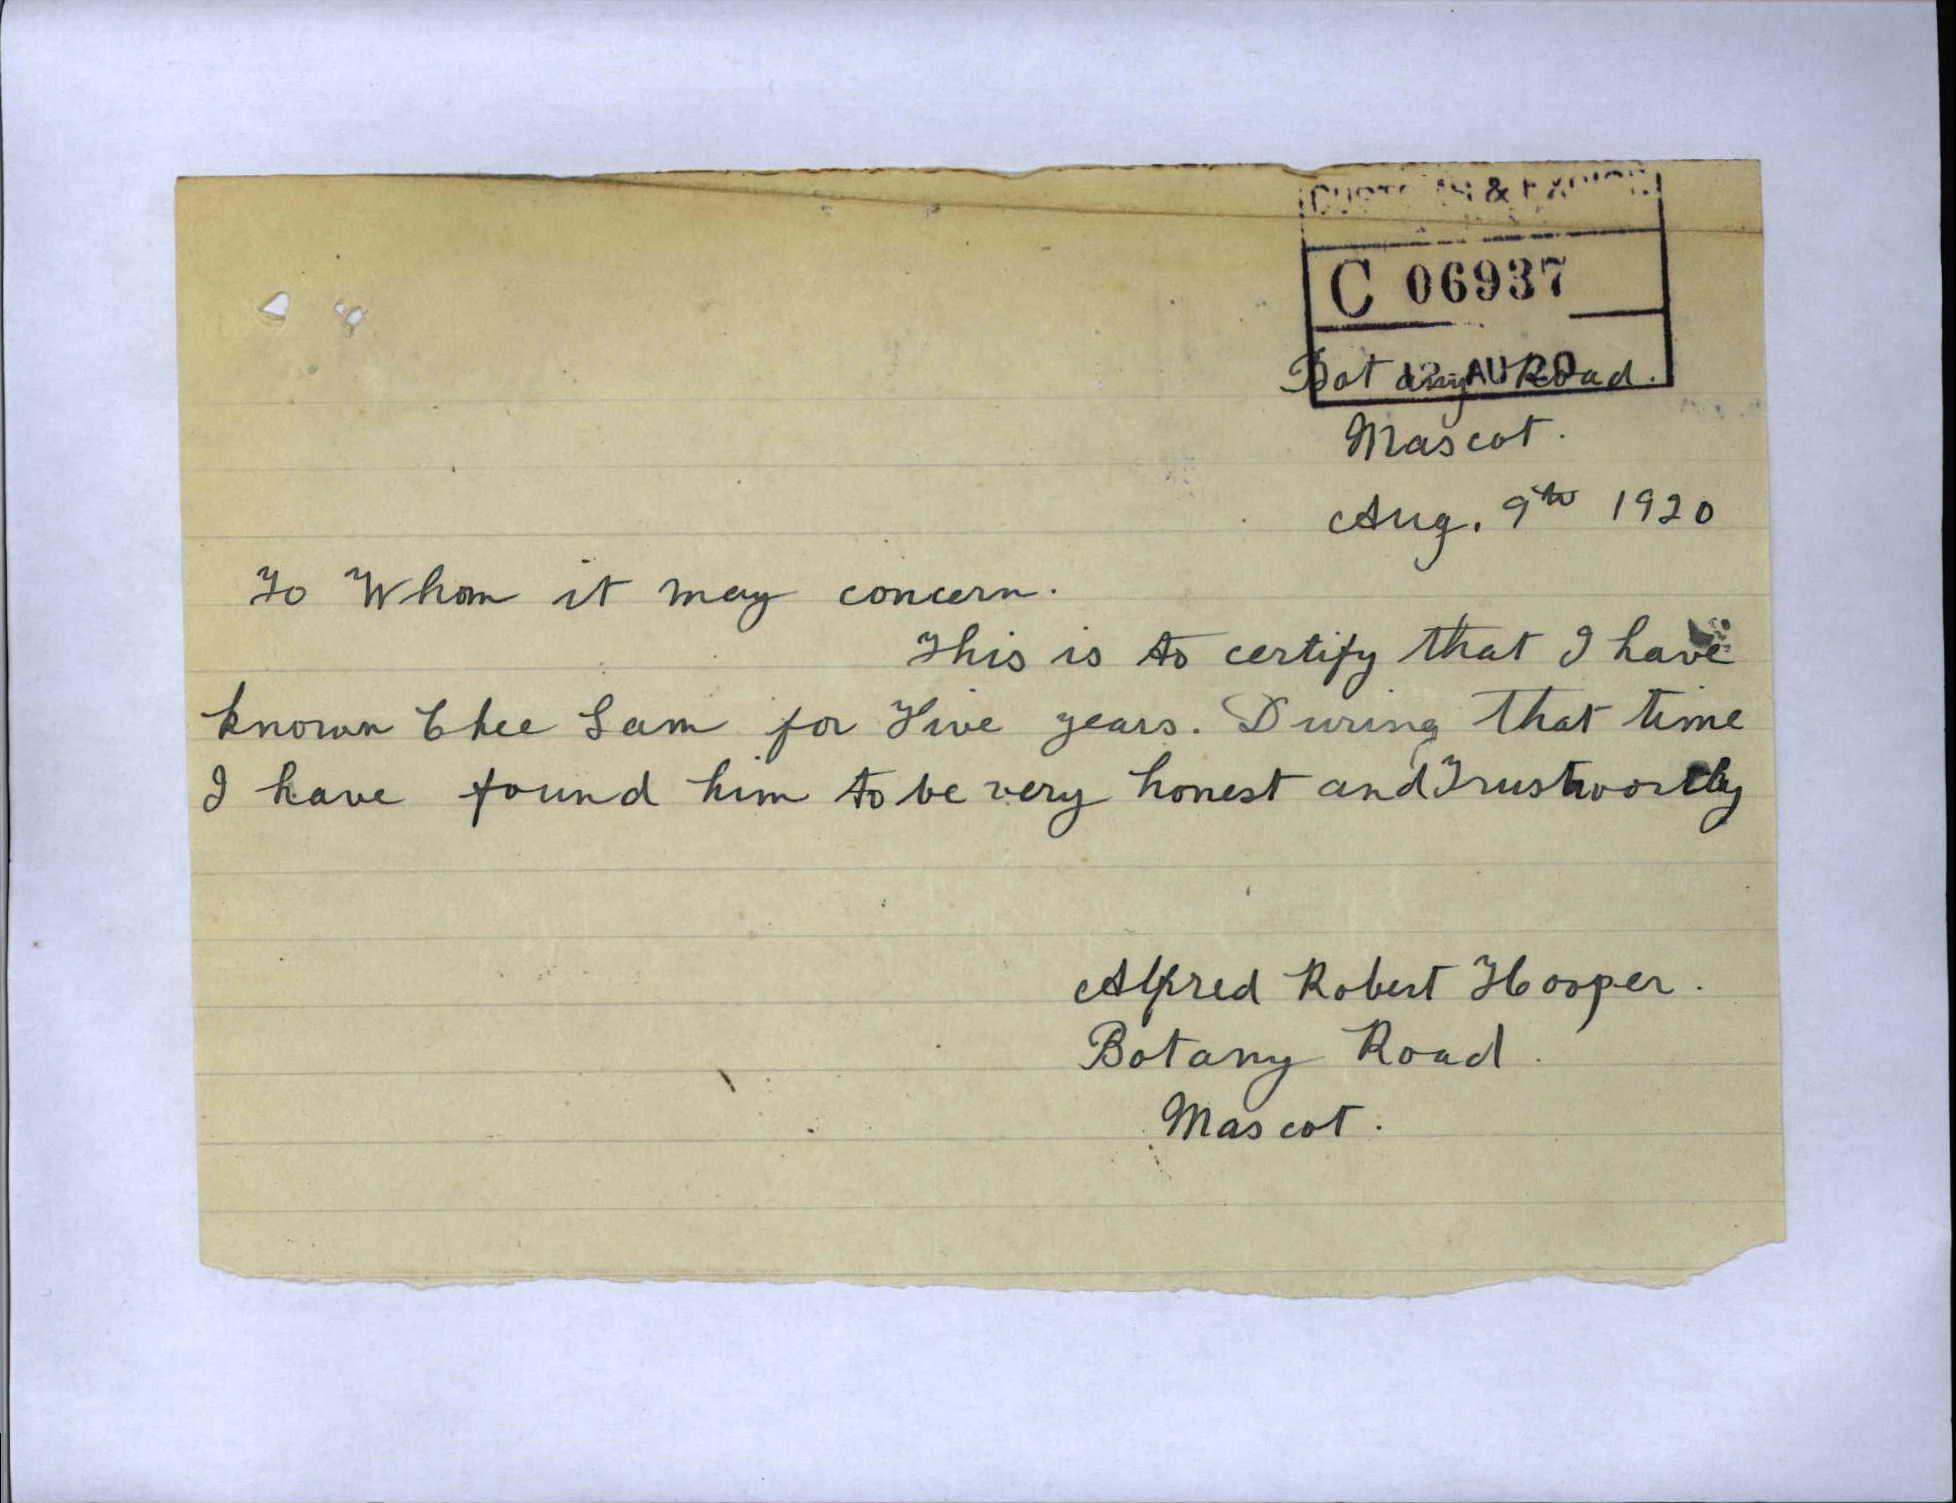 CUSTOMS & EXCISE
C 06937
12 AU 20
Botany Road.
Mascot.
Aug. 9th 1920
To Whom it may concern.
This is to certify that I have
known Chee Sam for Five years. During that time
I have found him to be very honest and Trustworthy
Alfred Robert Hooper.
Botany Road.
Mascot.